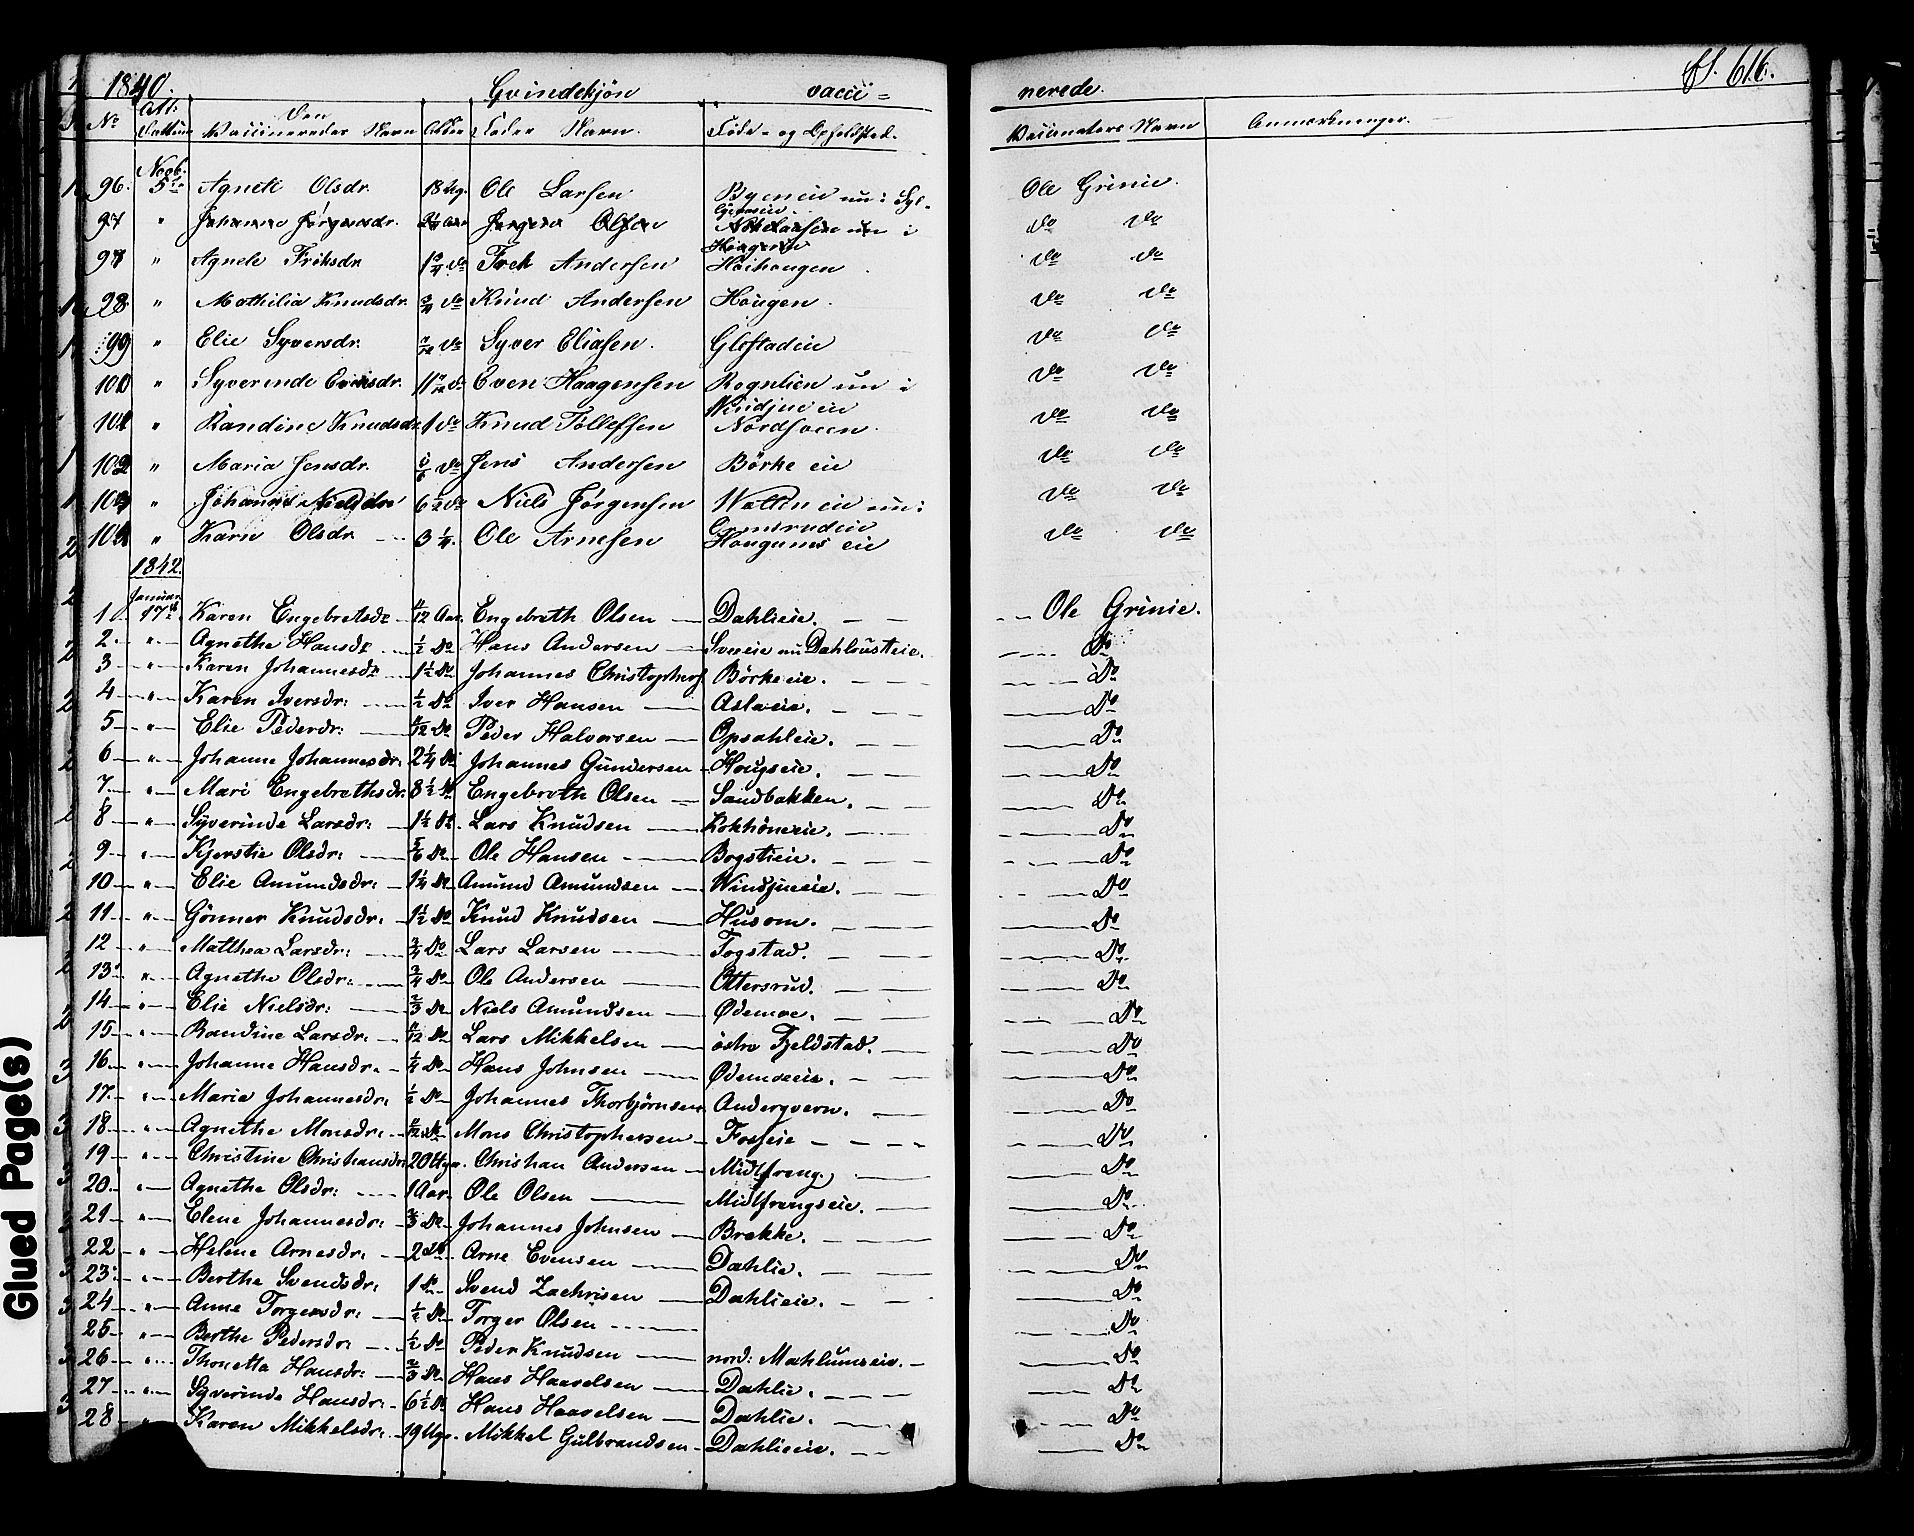 1840. Qvindekjön vacci = nerede. fl. 616.
No Att: Dattum Den Vaccineredes Navn Alder Fader Navn. Føde- og Opholdsted. Vaccinators Navn Anmærkninger.
96. Novb. 5te Agnete Olsdr. 18 Ug. Ole Larsen Byeneie nu i Ole Grinie.
97 " Johanne Jørgensdr. Jørgen Olsen nu i Do Do
98 " Agnete Friksdr. 1 3/4 Do Frek Andersen Høihaugen Do Do
98 " Mathilia Knudsdr. 3/4 Do Knud Andersen Hougen. Do Do
99 " Elie Syversdr. Do Syver Eliasen. Glestadeie Do Do
100 " Syverinde Evensdr. 11 Do Even Haagensen Rognlien nu i Windjueeie Do Do
101 " Randine Knudsdr. 1 Do Knud Tollefsen Nordsveen. Do Do
102 " Maria Jensdr. 5/6 Do Jens Andersen Börke eie Do Do
103 " Johanne Nielsdr. 6 1/2 Do Niels Jørgensen eie nu: Do Do
104 " Karn Olsdr. 3 1/4. Ole Arnesen Hougnæs eie Do Do
1842.
1. Januar 17de Karen Engebretsdr. 11/12 Aar. Engebreth Olsen Dahlieie. Ole Grinie.
2. " Agnethe Hansdr. 1/2 Do Hans Andersen Sveeie nu Dahlousteie. Do
3 " Karen Johannesdr. 1 1/2 Do Johannes Christophers Börkeeie. Do
4 " Karen Iversdr: 1/2 Do Iver Hansen Aslaeie. Do
5 " Elie Pederdr: 11/12 Do Peder Halvorsen Opsahleie. Do
6 " Johanne Johannesdr: 2 1/4 Do Johannes Gundersen Hougseie. Do
7 " Mari Engebrethsdr: 3 1/2 Do Engebreth Olsen Sandbakken. Do
8 " Syverinde Larsdr: 1 1/2 Do. Lars Knudsen Kokhöneeie. Do
9 " Kjerstie Olsdr: 5/6 Do Ole Hansen Bogstieie. Do
10 " Elie Amundsdr: 1 1/4 Do Amund Amundsen Windjueeie. Do
11 " Gönner Knudsdr: 1 1/2 Do Knud Knudsen Husom. Do
12 " Matthea Larsdr: 3/4 Do Lars Larsen Togstad. Do
13 " Agnethe Olsdr: 3/4 Do Ole Andersen Ottersrud. Do
14 " Elie Nielsdr: 2/3 Do Niels Amundsen Ødemoe. Do
15 " Randine Larsdr: 11/12 Do Lars Mikkelsen östre Fjeldstad. Do
16 " Johanne Hansdr: 1/4 Do Hans Johnsen Ødemoeeie. Do
17 " Marie Johannesdr: 1/2 Do Johannes Thorbjørnsen Andergvern. Do
18 " Agnethe Monsdr: 11/12 Do Mons Christophersen Fosseie Do
19 " Christine Christiansdr: 20 Uger. Christian Andersen Midtfreng. Do
20 " Agnethe Olsdr: 1 Aar. Ole Olsen Midtfrengseie. Do
21 " Elene Johannesdr: 2/3 Do Johannes Johnsen Brekke. Do
22 " Helene Arnesdr: 2 Do Arne Evensen Dahlie. Do
23 " Berthe Svendsdr: 1 Do Svend Zachrisen Dahlieie. Do
24 " Anne Torgersdr: 1/2 Do Torger Olsen Do
25 " Berthe Pedersdr: 1/2 Do Peder Knudsen nord: Mæhlumseie. Do
26 " Thonetta Hansdr: 2/3 Do Hans Haavelsen Dahlie. Do
27 " Syverinde Hansdr: 6 1/2 Do Hans Haavelsen Dahlie. Do
28 " Karen Mikkelsdr: 19 Uger. Mikkel Gulbrandsen Dahlieeie. Do
Glued Page(s)